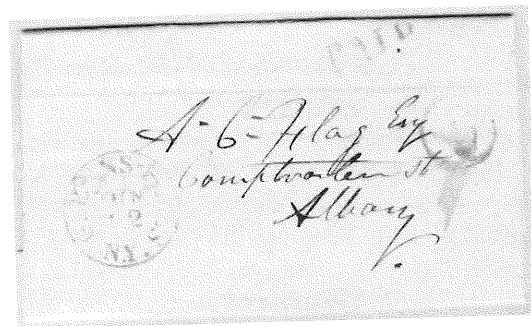 PAID
A-C-Flag Esq
Comptroller st
Albany
N.Y.